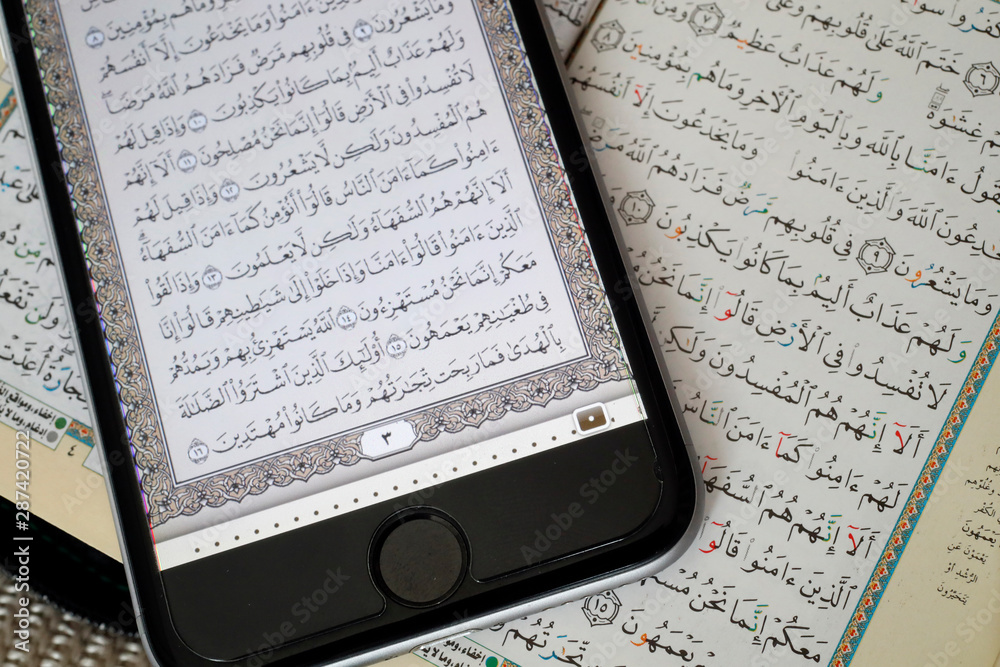 وَمَا هُم بِمُؤْمِنِينَ ٨
ءَامَنُوا۟ وَمَا يَخْدَعُونَ إِلَّآ أَنفُسَهُمْ
وَمَا يَشْعُرُونَ ٩ فِى قُلُوبِهِم مَّرَضٌ فَزَادَهُمُ ٱللَّهُ مَرَضًا
وَلَهُمْ عَذَابٌ أَلِيمٌۢ بِمَا كَانُوا۟ يَكْذِبُونَ ١٠ وَإِذَا قِيلَ لَهُمْ
لَا تُفْسِدُوا۟ فِى ٱلْأَرْضِ قَالُوٓا۟ إِنَّمَا نَحْنُ مُصْلِحُونَ ١١ أَلَآ إِنَّهُمْ
هُمُ ٱلْمُفْسِدُونَ وَلَٰكِن لَّا يَشْعُرُونَ ١٢ وَإِذَا قِيلَ لَهُمْ
ءَامِنُوا۟ كَمَآ ءَامَنَ ٱلنَّاسُ قَالُوٓا۟ أَنُؤْمِنُ كَمَآ ءَامَنَ ٱلسُّفَهَآءُ
أَلَآ إِنَّهُمْ هُمُ ٱلسُّفَهَآءُ وَلَٰكِن لَّا يَعْلَمُونَ ١٣ وَإِذَا لَقُوا۟
ٱلَّذِينَ ءَامَنُوا۟ قَالُوٓا۟ ءَامَنَّا وَإِذَا خَلَوْا۟ إِلَىٰ شَيَٰطِينِهِمْ قَالُوٓا۟ إِنَّا
مَعَكُمْ إِنَّمَا نَحْنُ مُسْتَهْزِءُونَ ١٤ ٱللَّهُ يَسْتَهْزِئُ بِهِمْ وَيَمُدُّهُمْ
فِى طُغْيَٰنِهِمْ يَعْمَهُونَ ١٥ أُو۟لَٰٓئِكَ ٱلَّذِينَ ٱشْتَرَوُا۟ ٱلضَّلَٰلَةَ
بِٱلْهُدَىٰ فَمَا رَبِحَت تِّجَٰرَتُهُمْ وَمَا كَانُوا۟ مُهْتَدِينَ ١٦
٣
٦ خَتَمَ ٱللَّهُ عَلَىٰ قُلُوبِهِمْ
غِشَٰوَةٌ وَلَهُمْ عَذَابٌ عَظِيمٌ ٧ وَمِنَ
يَقُولُ ءَامَنَّا بِٱللَّهِ وَبِٱلْيَوْمِ ٱلْأٓخِرِ وَمَا هُم بِمُؤْمِنِينَ ٨
يُخَٰدِعُونَ ٱللَّهَ وَٱلَّذِينَ ءَامَنُوا۟ وَمَا يَخْدَعُونَ إِلَّآ أَنفُسَهُمْ
وَمَا يَشْعُرُونَ ٩ فِى قُلُوبِهِم مَّرَضٌ فَزَادَهُمُ ٱللَّهُ مَرَ
وَلَهُمْ عَذَابٌ أَلِيمٌۢ بِمَا كَانُوا۟ يَكْذِبُونَ ١٠
لَا تُفْسِدُوا۟ فِى ٱلْأَرْضِ قَالُوٓا۟ إِنَّمَا نَحْنُ
أَلَآ إِنَّهُمْ هُمُ ٱلْمُفْسِدُونَ وَلَٰكِن
لَهُمْ ءَامِنُوا۟ كَمَآ ءَامَنَ ٱلنَّاسُ
أَلَآ إِنَّهُمْ هُمُ ٱلسُّفَهَآ
ٱلَّذِينَ ءَامَنُوا۟ قَالُوٓا۟
مَعَكُمْ إِنَّمَا نَحْنُ مُسْ
يَعْمَهُونَ ١٥
تِّجَٰرَتُهُمْ
وَغُلُوِّهِم
الكُفْرِ
يَعْمَهُونَ
يَعْمَوْنَ عَنِ
الرُّشْدِ أَوْ
يَتَحَيَّرُونَ
٤
Adobe Stock | #287420722